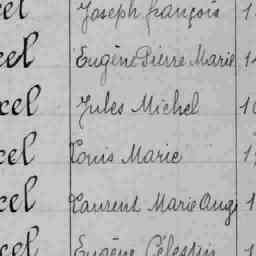 cel Joseph françois 1
cel Eugène Pierre Marie 1
cel Jules Michel 1
cel Louis Marie 1
cel Laurent Marie Ang 1
cel Eugène Célestin 1